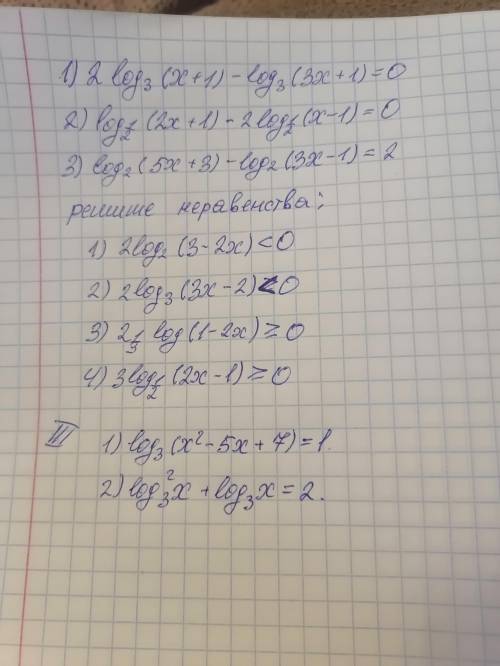 1) 2 log₃ (x+1) - log₃ (3x+1) = 0
2) log½ (2x+1) - 2 log½ (x-1) = 0
3) log₂ (5x+3) - log₂ (3x-1) = 2
решите неравенства:
1) 2log₂ (3-2x) < 0
2) 2log₃ (3x-2) < 0
3) 2⅓ log (1-2x) ≥ 0
4) 3log½ (2x-1) ≥ 0
III
1) log₃ (x² - 5x + 7) = 1.
2) log₃² x + log₃ x = 2.